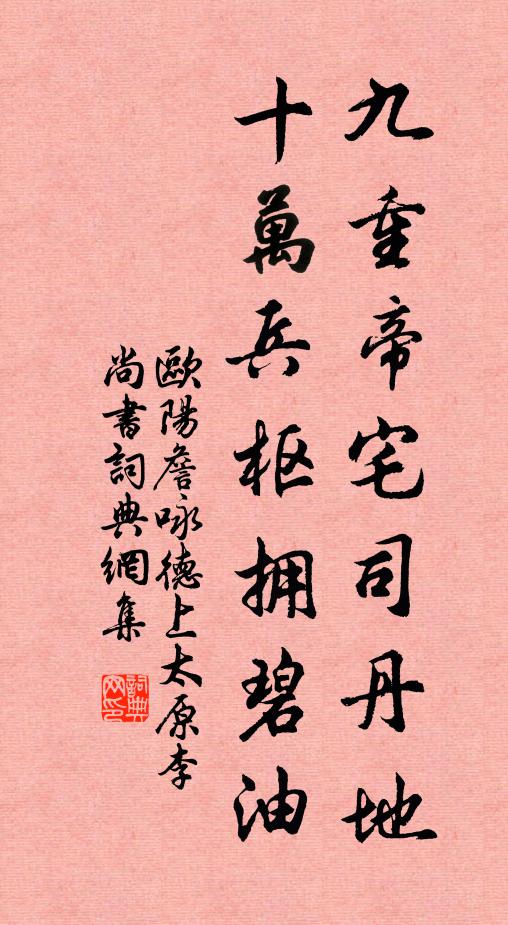 九重帝宅司丹地
十萬兵枢拥碧油
歐陽詹咏德上太原李
尚書詞典網集
詞典网印